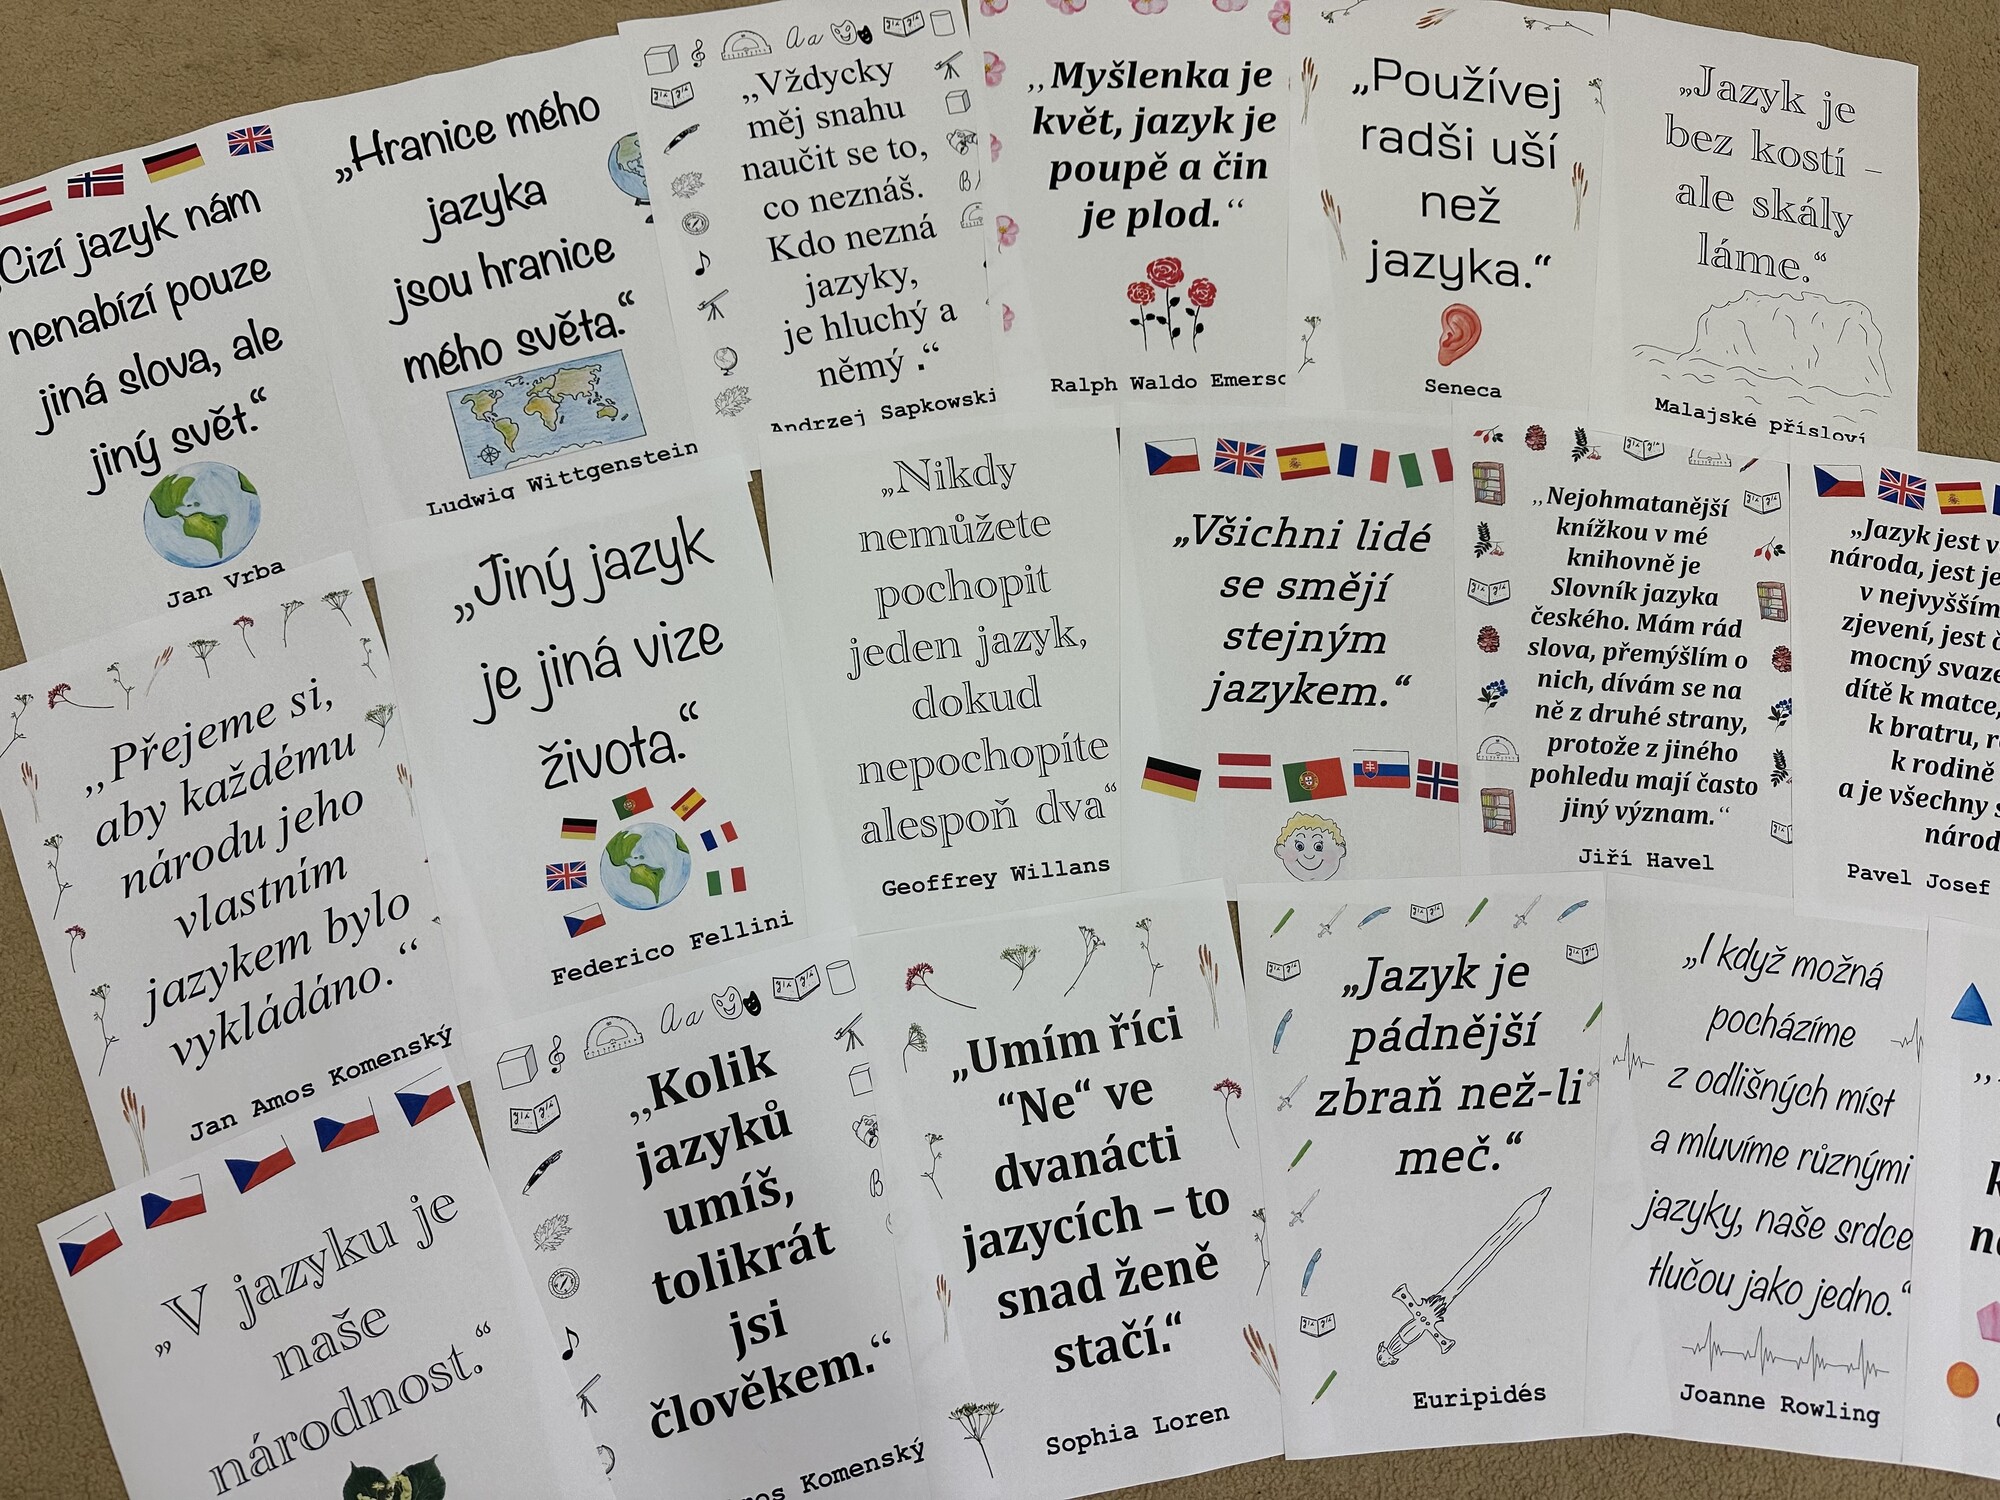 „Cizí jazyk nám
nenabízí pouze
jiná slova, ale
jiný svět.“
Jan Vrba
„Hranice mého
jazyka
jsou hranice
mého světa.“
Ludwig Wittgenstein
Aa
„Vždycky
měj snahu
naučit se to,
co neznáš.
Kdo nezná
jazyky,
je hluchý a
němý .“
Andrzej Sapkowski
„Myšlenka je
květ, jazyk je
poupě a čin
je plod.“
Ralph Waldo Emerso
„Používej
radši uší
než
jazyka.“
Seneca
„Jazyk je
bez kostí –
ale skály
láme.“
Malajské přísloví
„Přejeme si,
aby každému
národu jeho
vlastním
jazykem bylo
vykládáno.“
Jan Amos Komenský
„Jiný jazyk
je jiná vize
života.“
Federico Fellini
„Nikdy
nemůžete
pochopit
jeden jazyk,
dokud
nepochopíte
alespoň dva“
Geoffrey Willans
„Všichni lidé
se smějí
stejným
jazykem.“
„Nejohmatanější
knížkou v mé
knihovně je
Slovník jazyka
českého. Mám rád
slova, přemýšlím o
nich, dívám se na
ně z druhé strany,
protože z jiného
pohledu mají často
jiný význam.“
Jiří Havel
„Jazyk jest v
národa, jest je
v nejvyšším
zjevení, jest
mocný svaze
dítě k matce,
k bratru,
k rodině
a je všechny
národ
Pavel Josef
„V jazyku je
naše
národnost.“
Aa
„Kolik
jazyků
umíš,
tolikrát
jsi
člověkem.“
mos Komenský
„Umím říci
“Ne“ ve
dvanácti
jazycích – to
snad ženě
stačí.“
Sophia Loren
„Jazyk je
pádnější
zbraň než-li
meč.“
Euripidés
„I když možná
pocházíme
z odlišných míst
a mluvíme různými
jazyky, naše srdce
tlučou jako jedno.“
Joanne Rowling